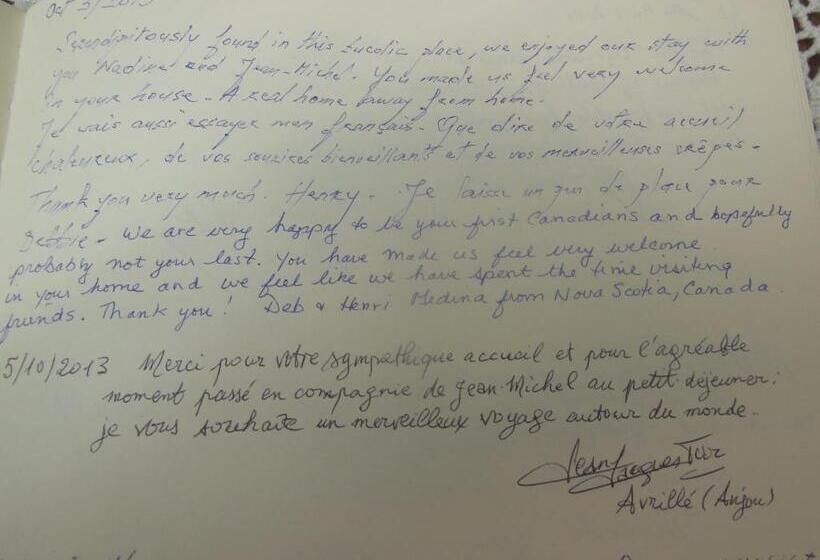 Oct 3/2013
Serendipitously found in this bucolic place, we enjoyed our stay with
you Nadine and Jean-Michel. You made us feel very welcome
in your house - A real home away from home.
Je vais aussi essayer mon français - Que dire de votre accueil
chaleureux, de vos sourires bienveillants et de vos merveilleuses crêpes -
Thank you very much. Henry - Je laisse un peu de place pour
Debbie - We are very happy to be your first Canadians and hopefully
probably not your last. You have made us feel very welcome
in your home and we feel like we have spent the time visiting
friends. Thank you! Deb & Henri Medina from Nova Scotia, Canada.
5/10/2013 Merci pour votre sympathique accueil et pour l'agréable
moment passé en compagnie de Jean-Michel au petit-déjeuner;
je vous souhaite un merveilleux voyage autour du monde..
Jean Jacques
Avrillé (Anjou)